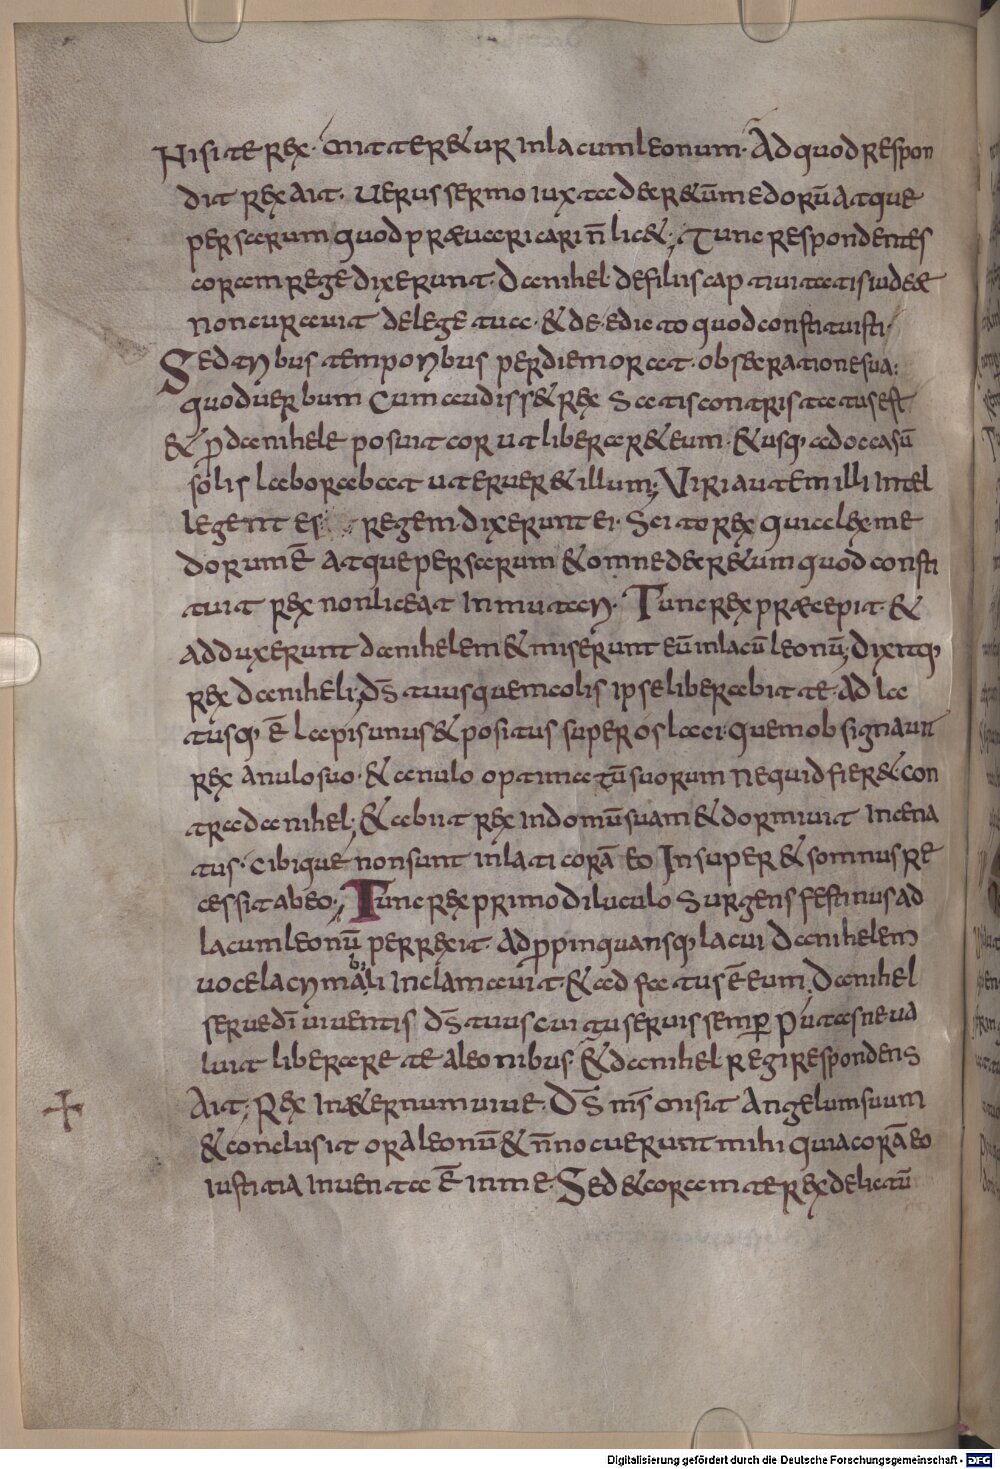 Nisi te rex · mitteret͛ur in lacum leonum · Ad quod respon
dit rex ait · uerus sermo iuxta decr&ū medorū atque
persarum quod præuaricari n̄ lic&; Tunc respondentes
coram rege dixerunt · Danihel · de filiis captiuitatis iudeæ
non curauit de lege tua · & de edicto quod constituisti ·
Sed tribus temporibus per diem orat · obsecratione sua:
quod uerbum cum audiss& rex satis contristatus est
& ꝓ danihele posuit cor ut liberar& eum · & usq; ad occasū
solis laborabat ut eruer& illum; Viri autem illi intel
legentes regem dixerunt ei · Scito rex quia lex me
dorum ē atque persarum & omne decr&um quod consti
tuit rex non liceat inmutari · Tunc rex præcepit · &
adduxerunt danihelem & miserunt eū in lacū leonū; dixitq;
rex daniheli; d̄s tuus quem colis ipse liberabit te · Ad la
tusq; ē lapis unus & positus super os laci · quem obsignauit
rex anulo suo · & anulo optimatū suorum ne quid fier& con
tra danihel; & abiit rex in domū suam & dormiuit incena
tus · cibique non sunt inlati corā eo Insuper & somnus re
cessit ab eo; Tunc rex primo diluculo surgens festinus ad
lacum leonū perrexit · Adꝓpinquansq; lacui danihelem
uoce lacrimabili inclamauit & ad fatus ē eum · Danihel
serue dī uiuentis d̄s tuus cui tu seruis semꝑ putasne ua
luit liberare te a leonibus · & danihel regi respondens
Ait; Rex in &ernum uiue · D̄s m̄s misit Angelum suum
& conclusit ora leonū & n̄ nocuerunt mihi quia corā eo
iustitia inuenta ē in me · Sed & coram te rex delictū
Digitalisierung gefördert durch die Deutsche Forschungsgemeinschaft - DFG